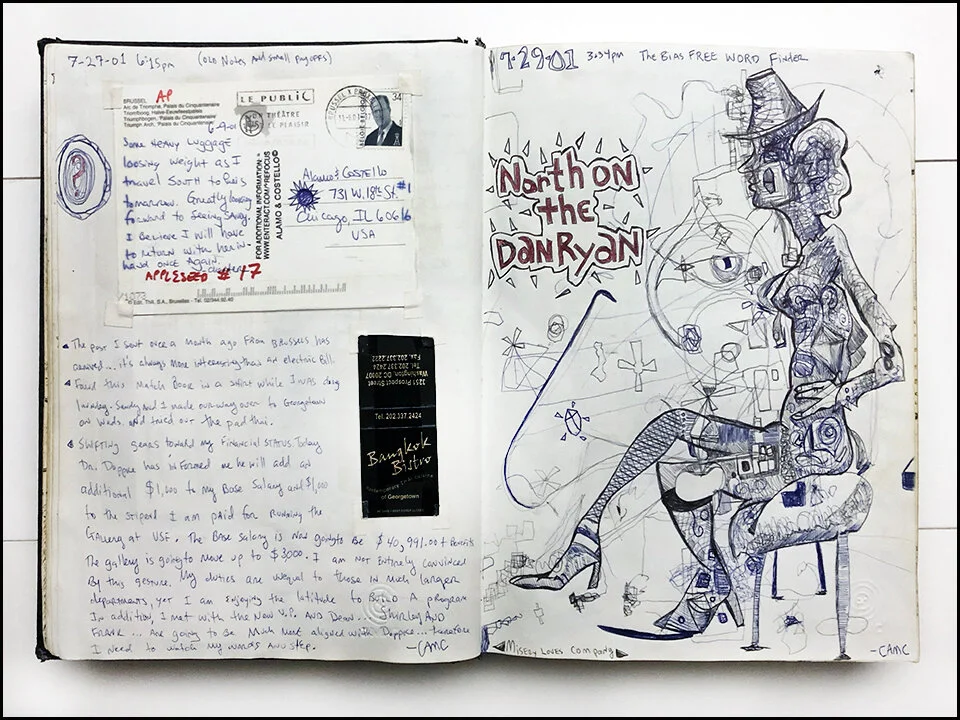 7-27-01 6:15pm (OLD NOTES AND SMALL PAYOFFS)
BRUSSEL AP
Arc de Triomphe, Palais du Cinquantenaire
Triomfboog, Halve-Eeuwfeestpaleis
Triumphbogen, 'Palais du Cinquantenaire'
Triumph Arch, 'Palais du Cinquantenaire'
6-9-01
Some HEAVY LUGGAGE
loosing weight as I
travel SOUTH to Paris
tomorrow. Greatly looking
forward to seeing
I believe I will have
to return with her in-
hand once again.
APPLESEED # 17
Bruxelles - Tel. 02/344.92.40
LE PUBLIC
THÉÂTRE
LE PLAISIR
34
FOR ADDITIONAL INFORMATION:
WWW.ENTERACT.COM/~REFOCUS
ALAMO & COSTELLO©
Alamo & Costello
731 W. 18th St. #1
Chicago, IL 60616
USA
The post I sent over a month ago FROM BRUSSELS has
arrived... it's always more interesting than an electric Bill.
Found this Match Book in a shirt while I was doing
laundry. Sandy and I made our way over to Georgetown
on Weds. and tried out the pad thai.
Shifting gears toward my financial STATUS. Today
Dr. Doppke has informed me he will add an
additional $1,000 to my Base Salary and $1,000
to the stipend I am paid for running the
Gallery at USF. The Base salary is now going to be $40,991.00 + Benefits
The gallery is going to move up to $3000. I am not entirely convinced
By this gesture. My duties are unequal to those in much larger
departments, yet I am enjoying the latitude to BUILD A program
In addition, I met with the New V.P. AND Dean... Shirley AND
FRANK... Are going to be much more aligned with Doppke... therefore
I need to watch my words AND step. -CAMC
3251 Prospect Street
Washington, DC 20007
Tel. 202.337.2424
Fax. 202.337.2222
Tel. 202.337.2424
Bangkok
Bistro
of Georgetown
7-29-01 3:34pm The BIAS FREE WORD Finder
North ON
the
DAN RYAN
MISERY LOVES COMPANY
-CAMC